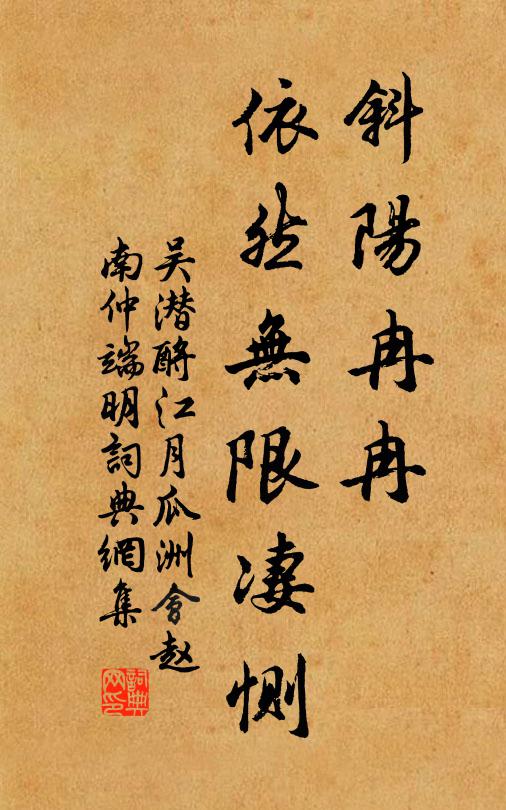 斜陽冉冉
依然無限凄惻
吴潜酹江月瓜洲會赵
南仲端明詞典網集
詞典网印